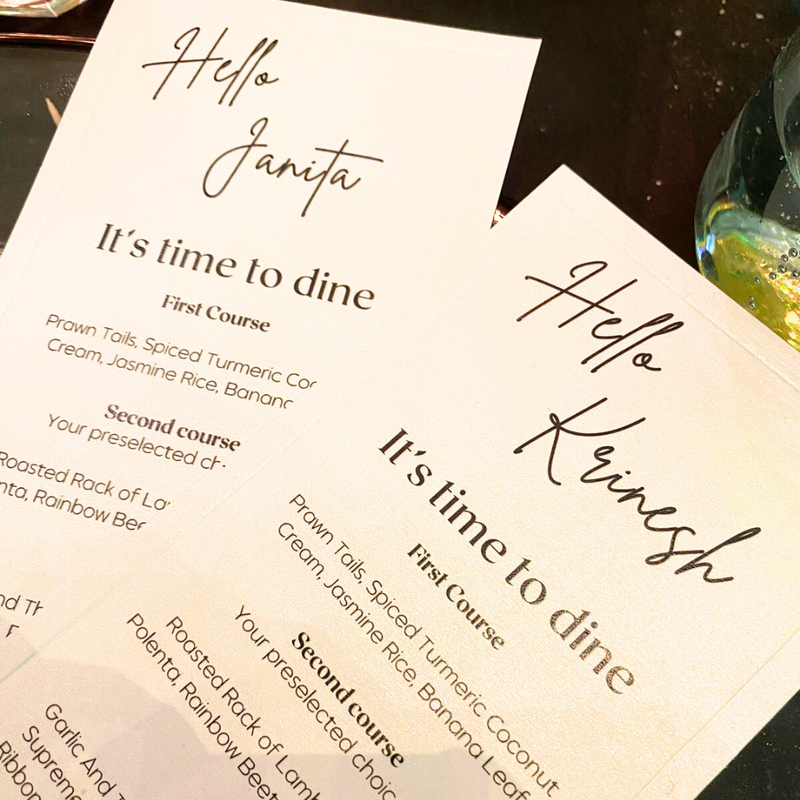 Hello
Janita
It's time to dine
First Course
Prawn Tails, Spiced Turmeric
Cream, Jasmine Rice,
Second course
Your preselected
Roasted Rack of
Rainbow
Hello
Krinesh
It's time to dine
First Course
Prawn Tails, Spiced Turmeric Coconut
Cream, Jasmine Rice, Banana Leaf
Second course
Your preselected
Roasted Rack of Lamb
Polenta, Rainbow Beet
Garlic And
Supreme
Ribbon